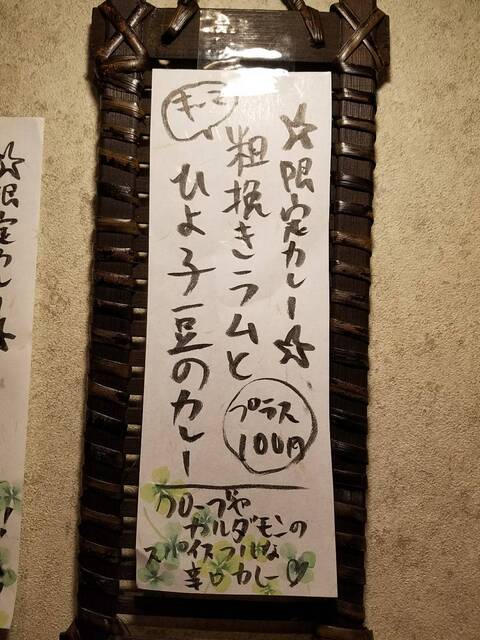 ☆限定カレー☆
キーマ
粗挽きラムと
ひよ子豆のカレー
プラス
100円
クローブや
カルダモンの
スパイスフルな
辛口カレー♡
☆限定カレー☆